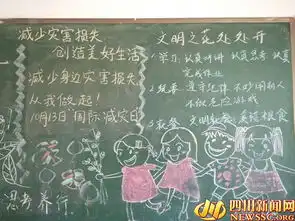 减少灾害损失
创造美好生活
减少身边灾害损失
从我做起!
10月13日国际减灾日
文明之花处处开
1.学习:认真听讲 认真思考 认真
完成作业
2.纪律:遵守纪律 不妙用别人
不做危险游戏
3.就餐:文明就餐
四川新闻网
NEWSSC.ORG